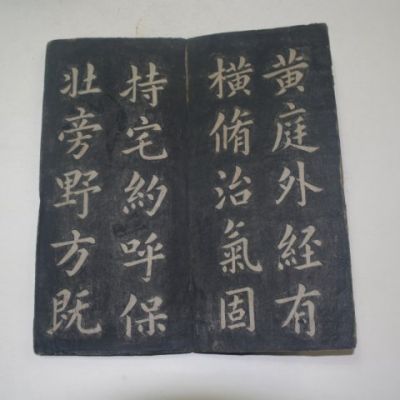 黄庭外経有
橫脩治氣固
持宅約呼保
壯旁野方既